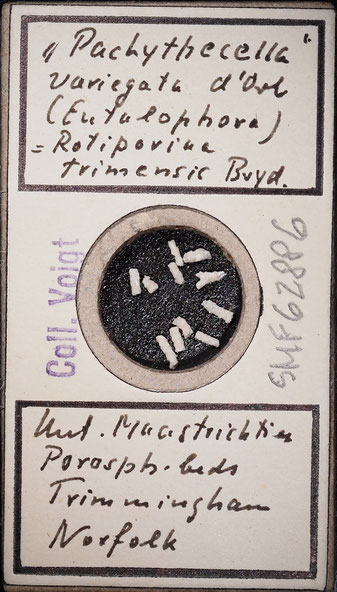 „Pachythecella“
variegata d'Orb
(Entalophora)
= Rotiporina
trimensis Bryd.
Coll. Voigt
SMF 62886
Unt. Maastrichtien
Porosph. beds
Trimmingham
Norfolk